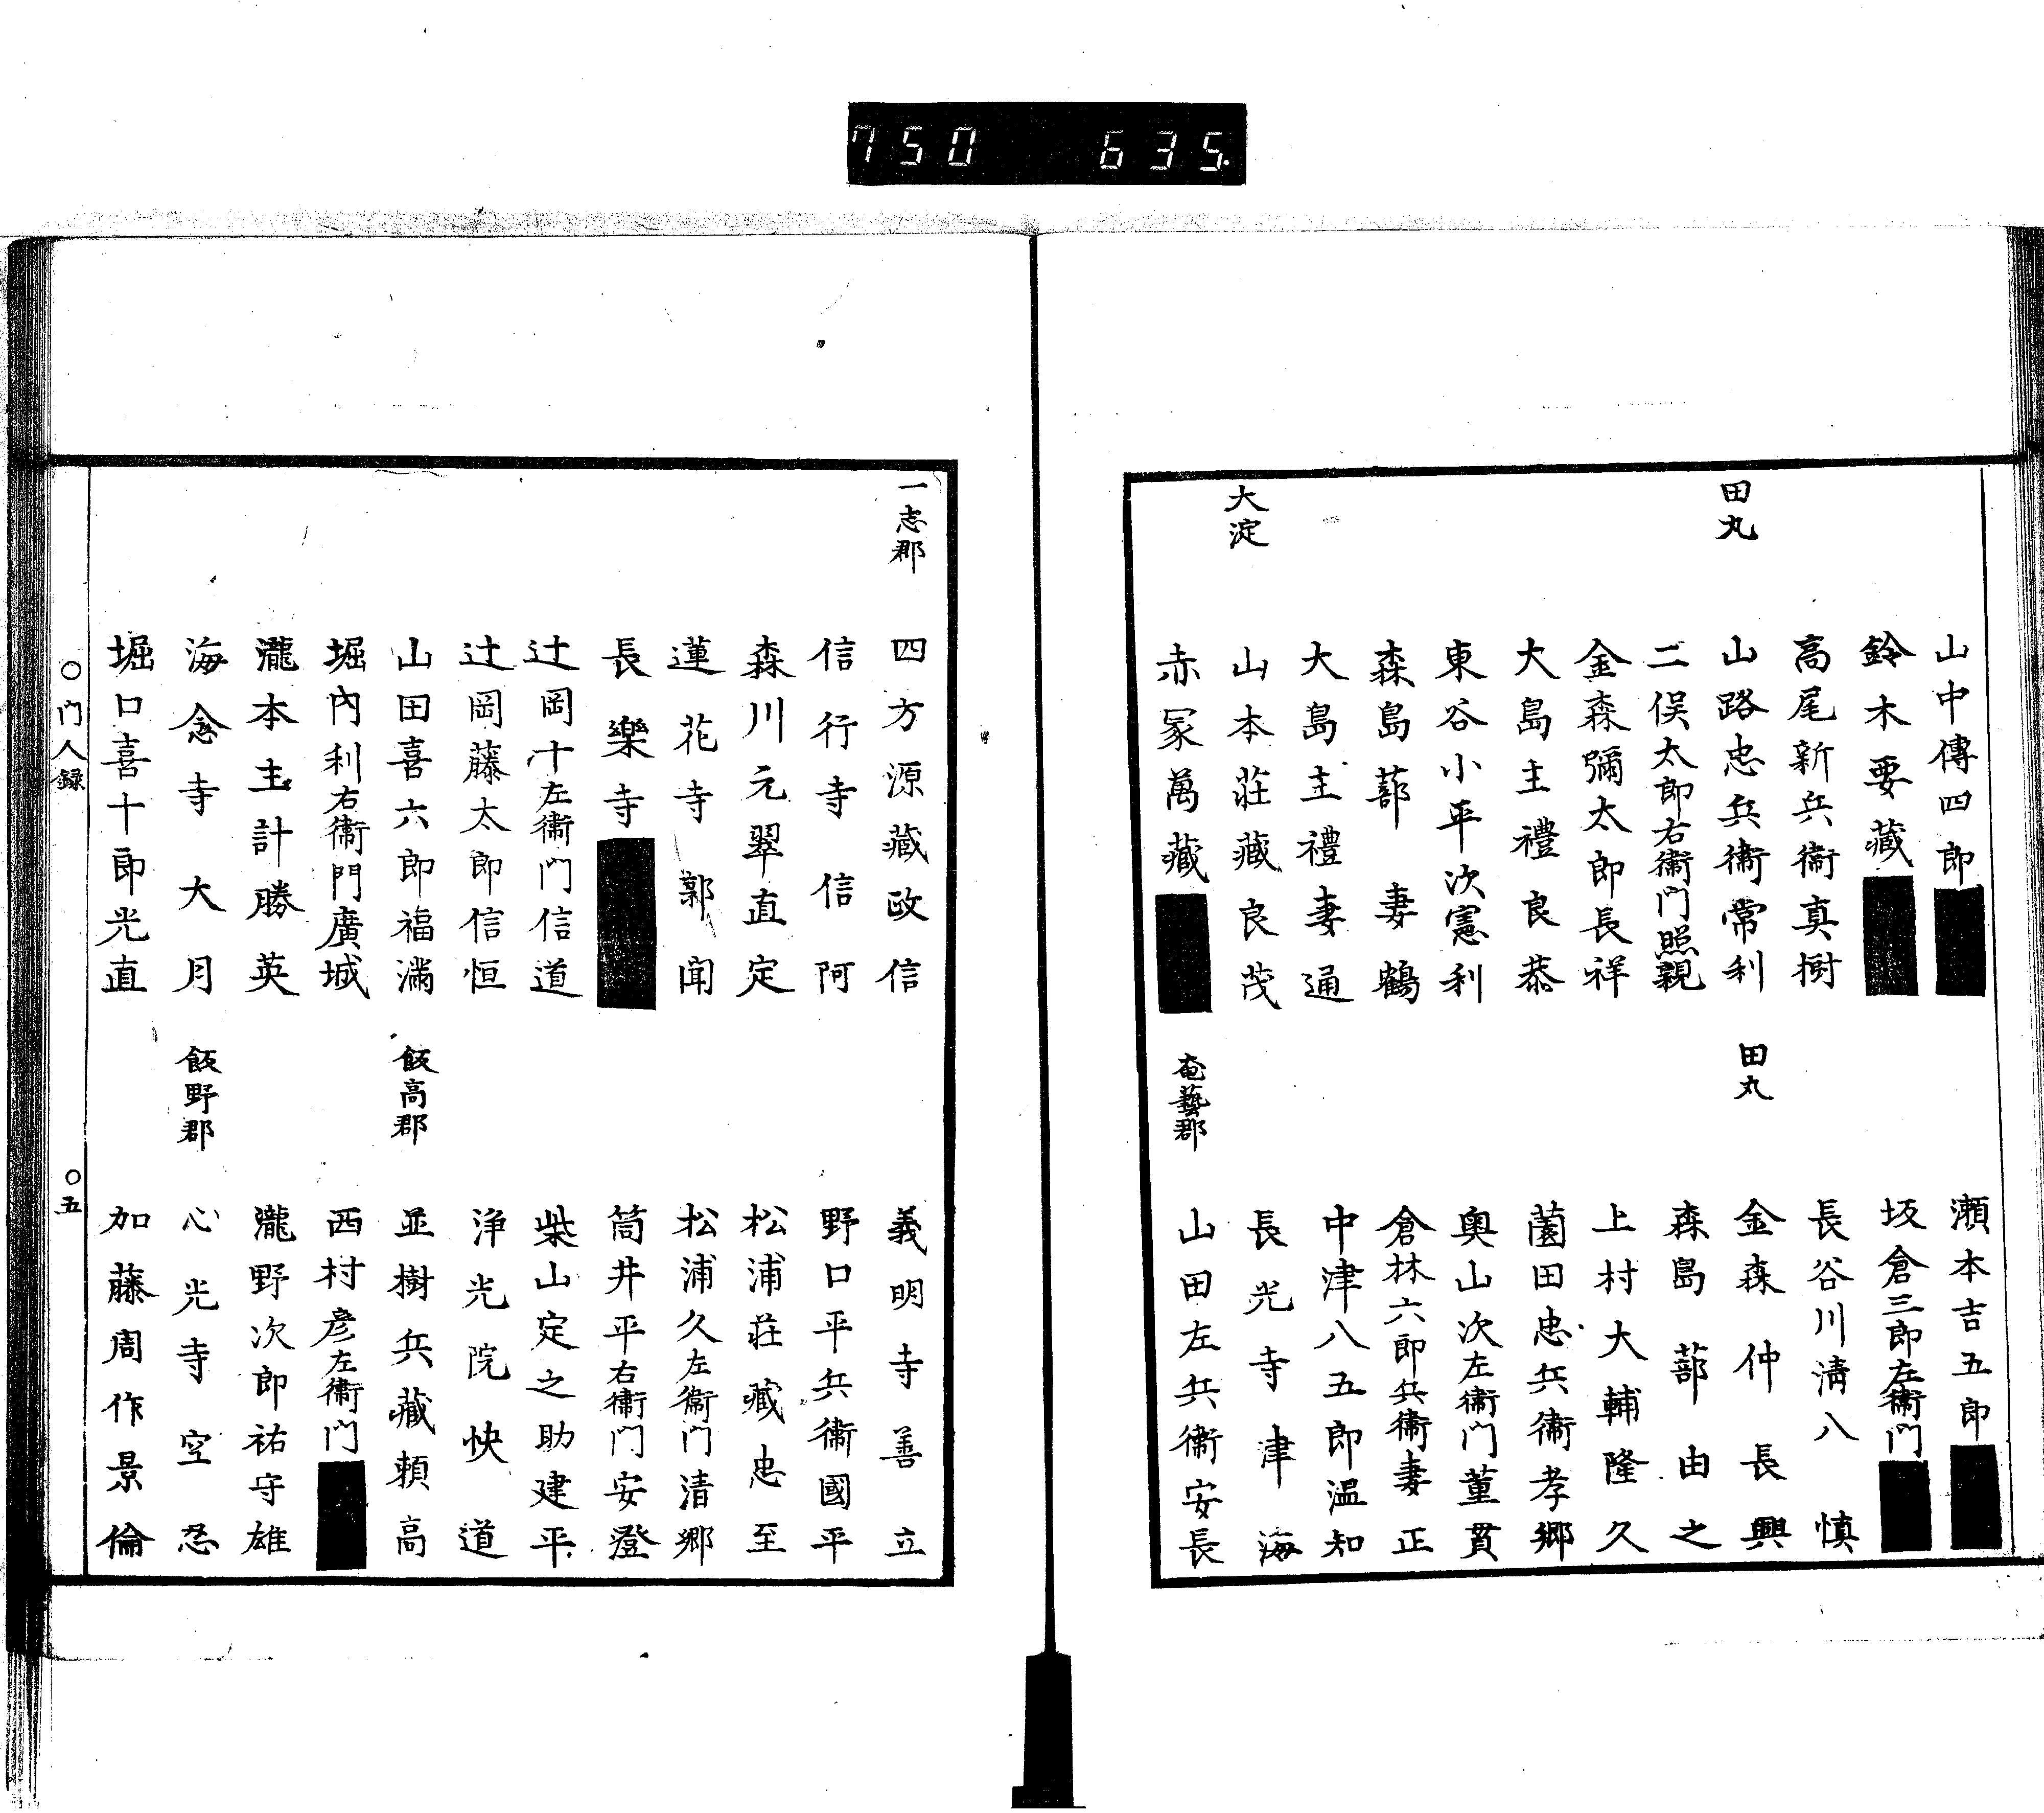 750 635.
山中傳四郎
鈴木要藏
高尾新兵衞真樹
田丸
山路忠兵衞常利
二俣太郎右衞門照親
金森彌太郎長祥
大島主禮良恭
東谷小平次憲利
森島蔀妻鶴
大島主禮妻通
大淀
山本莊藏良茂
赤冢萬藏
瀬本吉五郎
坂倉三郎左衞門
長谷川清八慎
田丸
金森仲長興
森島蔀由之
上村大輔隆久
薗田忠兵衞孝郷
奥山次左衞門董貫
倉林六郎兵衞妻正
中津八五郎温知
長光寺津海
奄藝郡
山田左兵衞安長
一志郡
四方源藏政信
信行寺信阿
森川元翠直定
蓮花寺郭聞
長樂寺
辻岡十左衞門信道
辻岡藤太郎信恒
山田喜六郎福滿
堀内利右衞門廣城
瀧本主計勝英
海念寺大月
堀口喜十郎光直
義明寺善立
野口平兵衞國平
松浦莊藏忠至
松浦久左衞門清郷
筒井平右衞門安澄
柴山定之助建平
浄光院快道
飯高郡
並樹兵藏頼高
西村彦左衞門
瀧野次郎祐守雄
飯野郡
心光寺空忍
加藤周作景倫
○門人録
○五